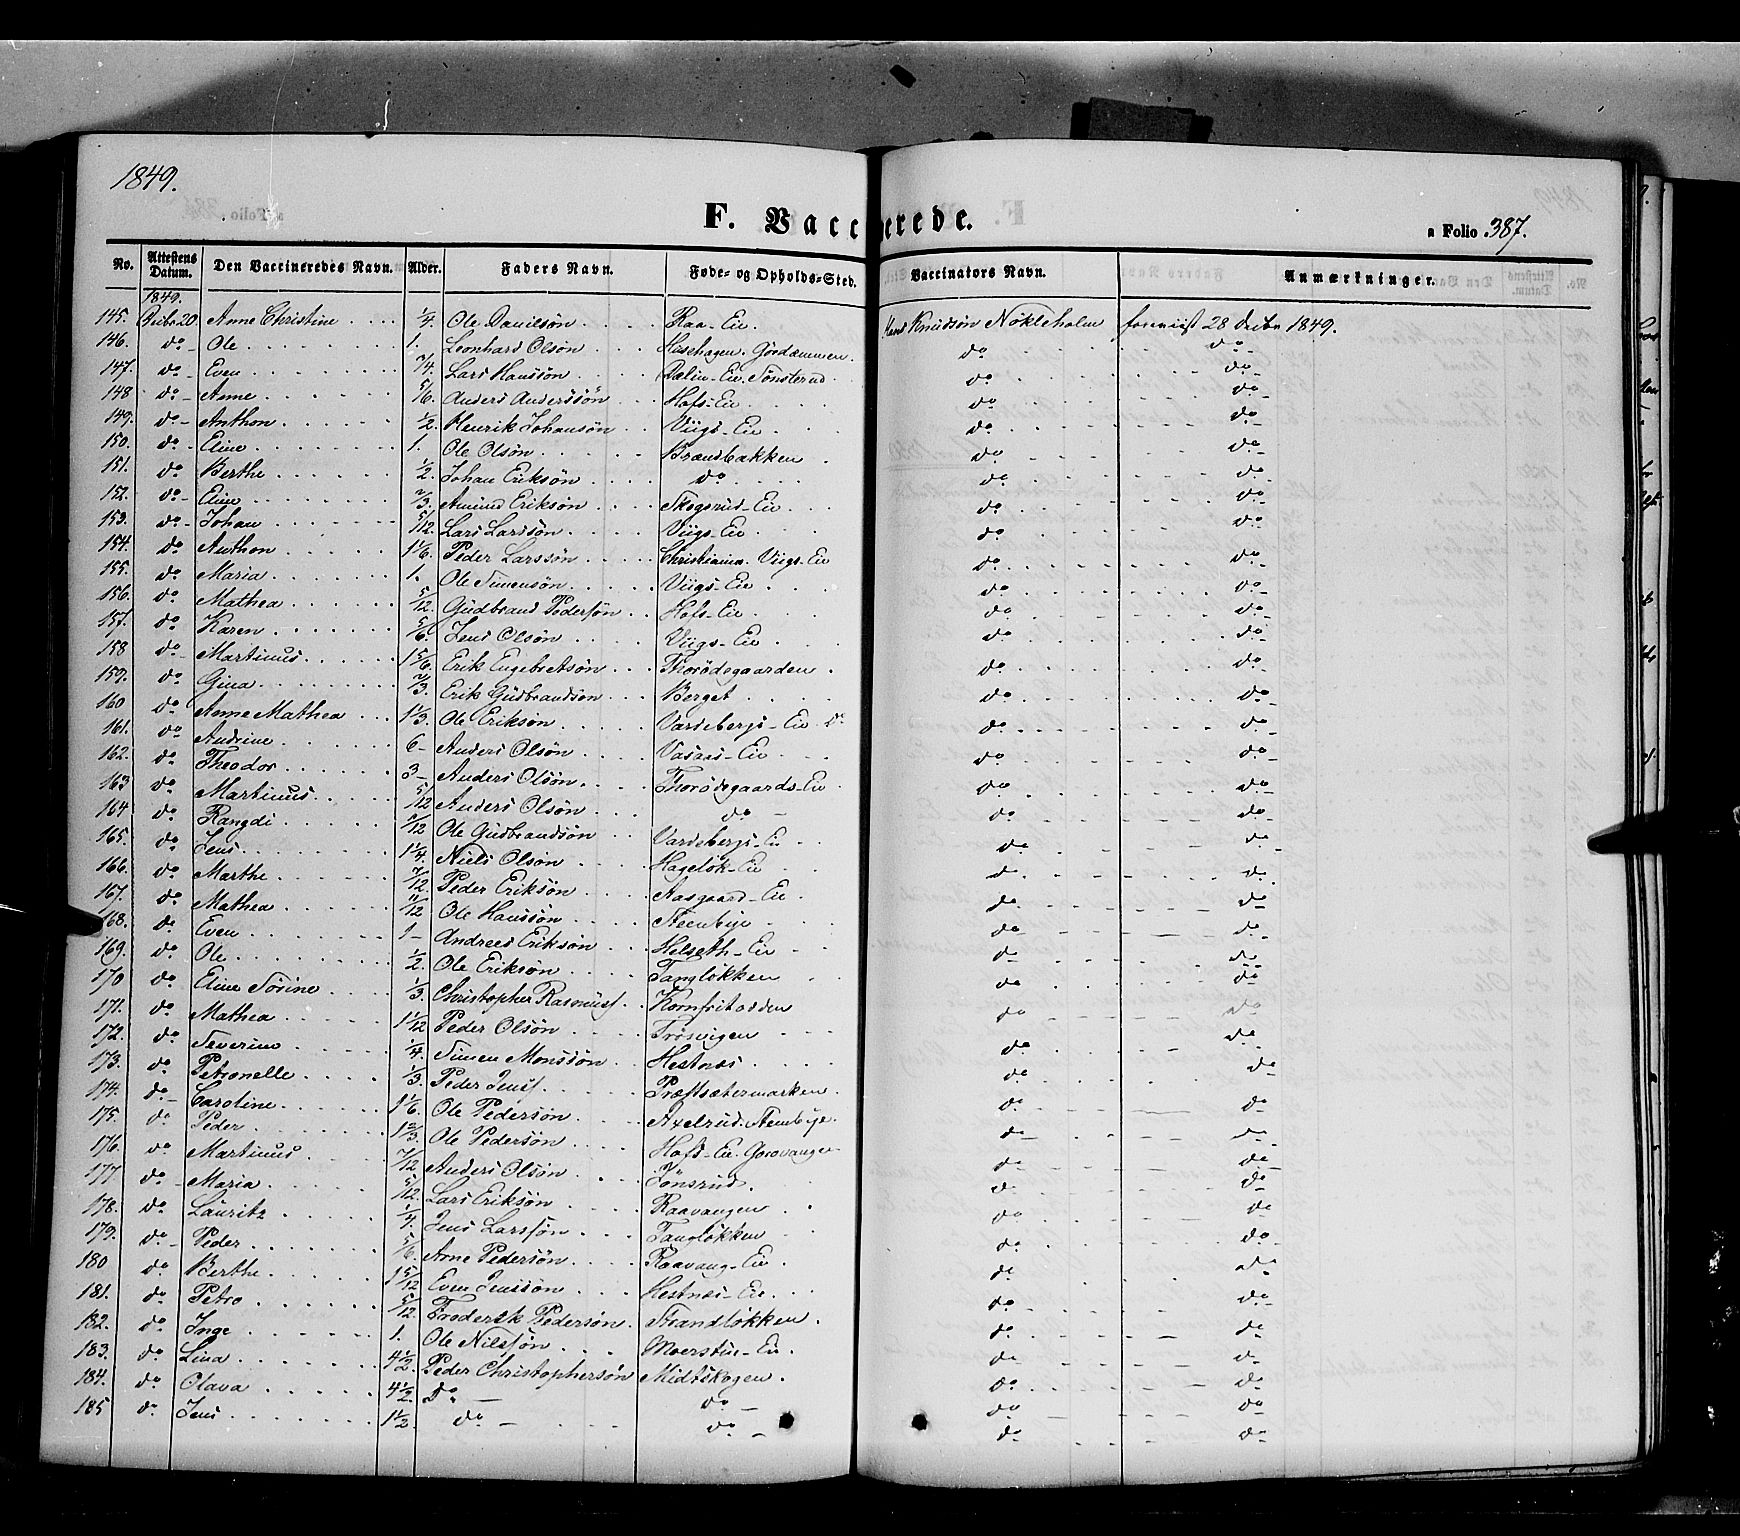 1849.
F. Vaccinerede.
a Folio 387.
No. Attestens Datum. Den Vaccineredes Navn. Alder. Faders Navn. Føde- og Opholds-Sted. Vaccinators Navn. Anmærkninger.
1849.
145. Decbr 20 Anne Christine 1/4. Ole Danilsøn Raa-Eie. Hans Knudsøn Nökleholm foreviist 28 Decbr 1849.
146. do Ole 1. Leonhard Olsøn Husehagen. do do
147. do Even 3/4. Lars Hanssøn Dælin-Eie. Tønsterud do do
148 do Anne 5/6. Anders Anderssön Hofs-Eie do do
149. do Anthon 1/2. Henrik Johansøn Viigs-Eie do do
150. do Eline 1. Ole Olsøn Brændbakken do do
151. do Berthe 1/2. Johan Eriksøn do do do
152. do Eline 2/3. Amund Eriksøn Skogsrud-Eie do do
153. do Johan 5/12. Lars Larssøn Viigs-Eie do do
154. do Anthon 1 1/6. Peder Larssøn Christianm. Viigs-Eie do do
155. do Maria 1. Ole Simensøn Viigs-Eie do do
156. do Mathea 5/12. Gudbrand Pedersøn Hofs-Eie do do
157. do Karen 5/6. Jens Olsøn Viigs-Eie do do
158 do Martinus 1 5/6. Erik Engebretsøn Thorødegaarden do do
159. do Gina 2/3. Erik Gudbrandsøn Berget do do
160 do Anne Mathea 1 1/3. Ole Eriksøn Vardebergs-Eie do do do
161. do Andrine 6 Anders Olsøn Vasaas-Eie do do
162. do Theodor 3 Anders Olsøn Thorødegaards-Eie do do
163 do Martinus 5/12 Anders Olsøn do do do
164 do Rangdi 7/12 Ole Gudbrandsøn Vardebergs-Eie do do
165. do Jens 1 1/4. Niels Olsøn Hageløk-Eie do do
166. do Marthe 7/12 Peder Eriksøn Aasgaard-Eie do do
167. do Mathea 11/12 Ole Hanssøn Steenbye do do
168. do Even 1 Andreas Eriksøn Helseth-Eie do do
169. do Ole 1/2. Ole Eriksøn Tangløkken do do
170 do Eline Sørine 1/3. Christopher Rasmuss. Kornfritodden do do
171. do Mathea 1 1/12 Peder Olsøn Frøsvigen do do
172. do Severine 1/4. Simen Monssøn Hestnæs do do
173. do Petronelle 1/3. Peder Jenss. Præstsætermarken do do
174. do Caroline 1 1/6. Ole Pedersøn Axelrud. Steenbye do do
175. do Peder 1 2/3. Ole Pedersøn Hofs-Eie. do do
176. do Martinus 7/12 Anders Olsøn Jønsrud do do
177 do Maria 5/12. Lars Eriksøn Raavangen do do
178. do Lauritz 1/4. Jens Larssøn Tangløkken do do
179. do Peder 5/6. Arne Pedersøn Raavang-Eie do do
180 do Berthe 1 5/12 Even Jenssøn Hestnæs-Eie do do
181. do Petra 5/12. Frederik Pedersøn. Strandløkken do do
182. do Inge 1. Ole Nilssøn Moerstue-Eie do do
183. do Lina 4 1/2. Peder Christophersøn Midtskogen do do
184. do Olava 4 1/2. Do do do do
185 do Jens 1 1/2 do do do do